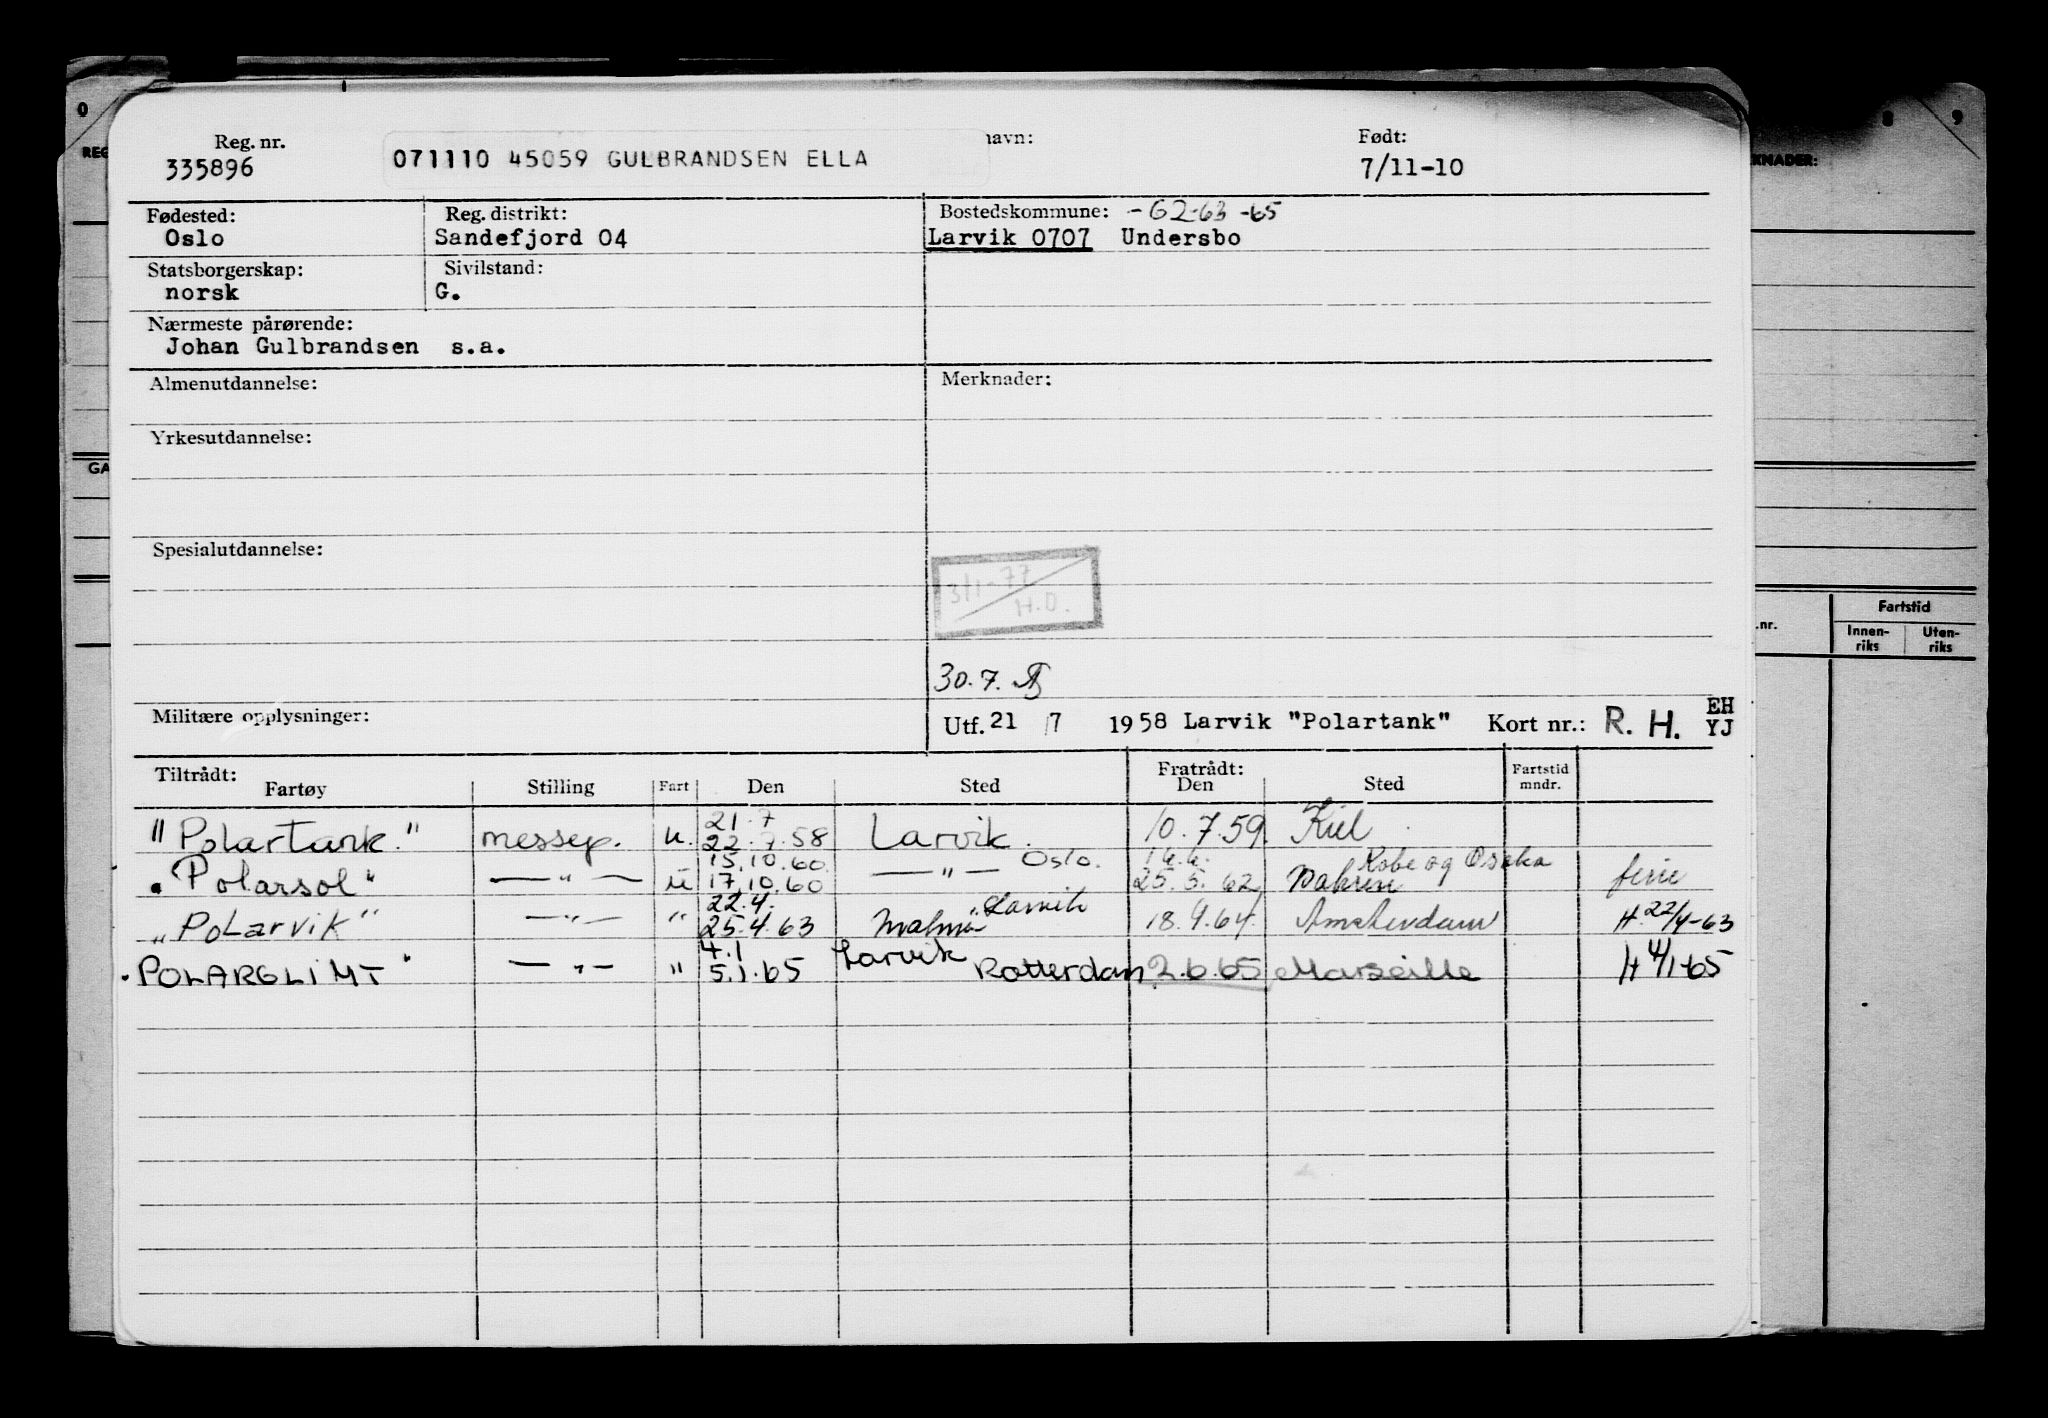 0 8 9
REG KNADER:
Reg. nr. navn: Født:
335896 071110 45059 GULBRANDSEN ELLA 7/11-10
Fødested: Reg. distrikt: Bostedskommune: -62-63-65
Oslo Sandefjord 04 Larvik 0707 Undersbo
Statsborgerskap: Sivilstand:
norsk G.
Nærmeste pårørende:
Johan Gulbrandsen s.a.
Almenutdannelse: Merknader:
Yrkesutdannelse:
GA
Spesialutdannelse:
3/1-77
H.O.
.nr. Fartstid
Innen-riks Uten-riks
30.7.
Militære opplysninger: Utf. 21 /7 1958 Larvik "Polartank" Kort nr.: R. H. EH
YJ
Tiltrådt: Fratrådt: Fartstid mndr.
Fartøy Stilling Fart Den Sted Den Sted
21.7
"Polartank." messep. u. 22.7.58 Larvik. 10.7.59. Kiel
15.10.60. Oslo. Kobe og Osaka
"Polarsol" —"— u 17.10.60 —"— 25.5.62 ferie
22.4. Larvik
"Polarvik" —"— " 25.4.63 Malmö 18.9.64. Amsterdam H 22/4-63
4.1 Larvik
"POLARGLIMT" —"— " 5.1.65 Rotterdam 2.6.65 Marseille H 4/1-65